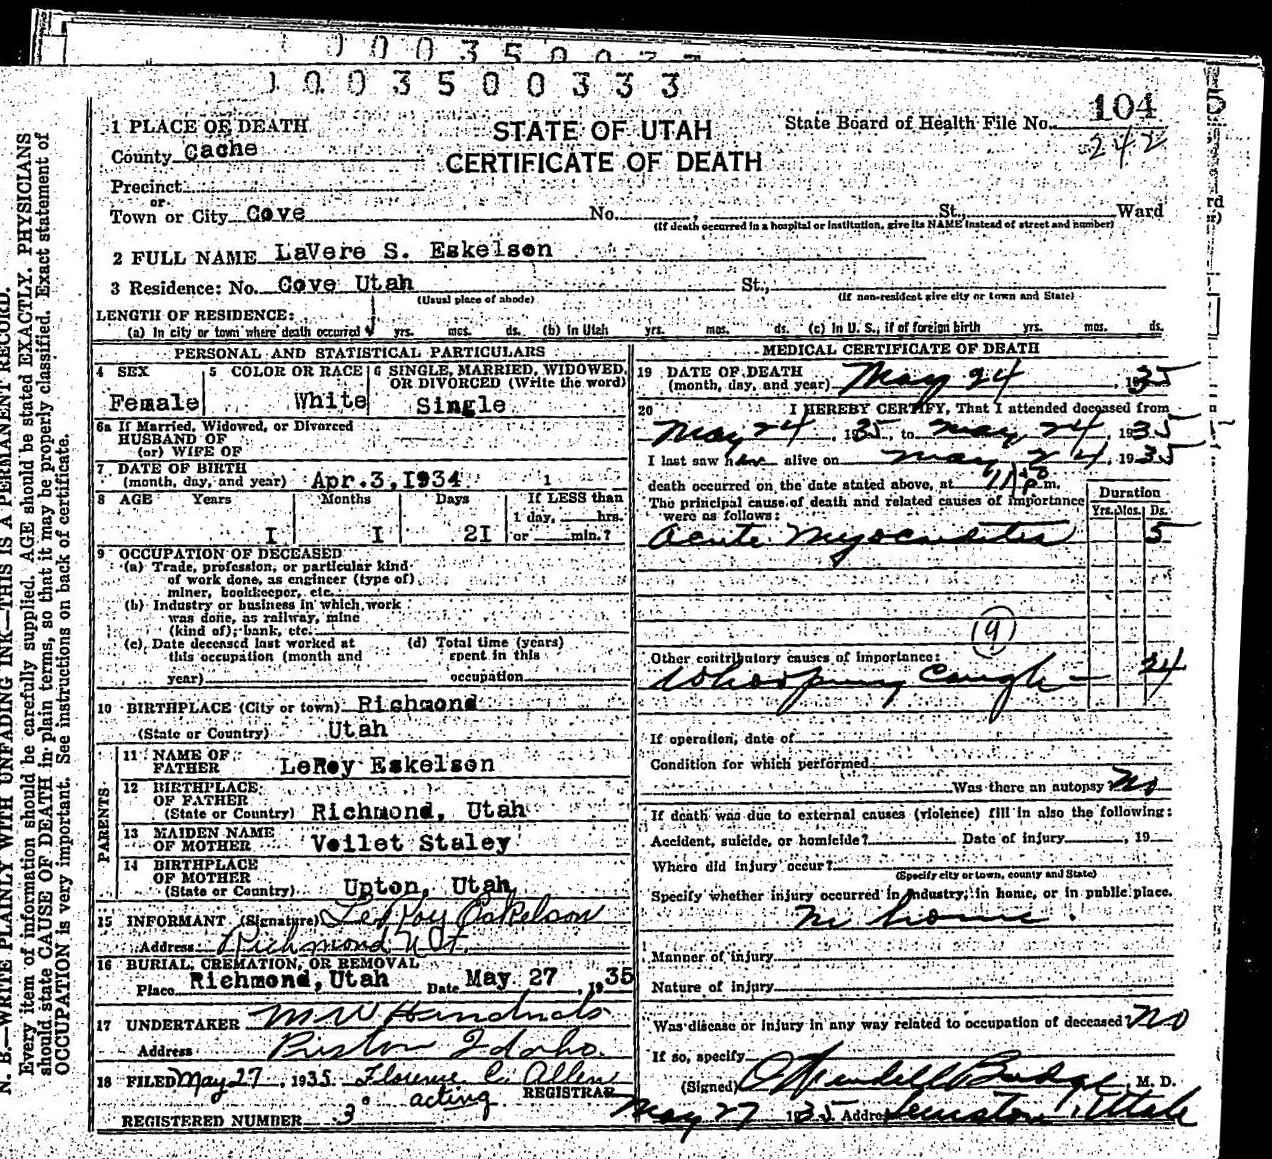 1 0 0 3 5 0 0 3 3 3
104
242
1 PLACE OF DEATH
STATE OF UTAH
CERTIFICATE OF DEATH
State Board of Health File No.
County Cache
Precinct
or
Town or City Cove No. St., Ward
(If death occurred in a hospital or institution, give its NAME instead of street and number)
2 FULL NAME LaVere S. Eskelson
3 Residence: No. Cove Utah St.,
(Usual place of abode) (If non-resident give city or town and State)
LENGTH OF RESIDENCE:
(a) In city or town where death occurred yrs. mos. ds. (b) In Utah yrs. mos. ds. (c) In U. S., if of foreign birth yrs. mos. ds.
PERSONAL AND STATISTICAL PARTICULARS
4 SEX
Female
5 COLOR OR RACE
White
6 SINGLE, MARRIED, WIDOWED,
OR DIVORCED (Write the word)
Single
6a If Married, Widowed, or Divorced
HUSBAND OF
(or) WIFE OF
7 DATE OF BIRTH
(month, day, and year) Apr.3,I934
8 AGE Years Months Days If LESS than
1 day, hrs.
I I 2I or min.?
9 OCCUPATION OF DECEASED
(a) Trade, profession, or particular kind
of work done, as engineer (type of)
miner, bookkeeper, etc.
(b) Industry or business in which work
was done, as railway, mine
(kind of), bank, etc.
(c) Date deceased last worked at
this occupation (month and
year)
(d) Total time (years)
spent in this
occupation
10 BIRTHPLACE (City or town) Richmond
(State or Country) Utah
PARENTS
11 NAME OF
FATHER LeRoy Eskelson
12 BIRTHPLACE
OF FATHER
(State or Country) Richmond, Utah
13 MAIDEN NAME
OF MOTHER Veilet Staley
14 BIRTHPLACE
OF MOTHER
(State or Country) Upton, Utah
15 INFORMANT (Signature) LeRoy Eskelson
Address Richmond Ut.
16 BURIAL, CREMATION, OR REMOVAL
Place Richmond, Utah Date May 27 , 1935
17 UNDERTAKER M W Hendricks
Address Preston Idaho.
18 FILED May 27 , 1935 Florence C. Allen
acting REGISTRAR
REGISTERED NUMBER 3
MEDICAL CERTIFICATE OF DEATH
19 DATE OF DEATH
(month, day, and year) May 24 , 1935
20 I HEREBY CERTIFY, That I attended deceased from
May 24 , 1935, to May 24 , 1935
I last saw her alive on May 24 , 1935
death occurred on the date stated above, at p.m.
The principal cause of death and related causes of importance
were as follows:
Duration
Yrs. Mos. Ds.
Acute Myocarditis 5
(9)
Other contributory causes of importance:
Whooping Cough — 24
If operation, date of
Condition for which performed
Was there an autopsy No
If death was due to external causes (violence) fill in also the following:
Accident, suicide, or homicide? Date of injury , 19
Where did injury occur?
(Specify city or town, county and State)
Specify whether injury occurred in industry, in home, or in public place.
in home.
Manner of injury
Nature of injury
Was disease or injury in any way related to occupation of deceased No
If so, specify
(Signed) O Wendell Budge, M. D.
May 27 1935 Address Lewiston, Utah
N. B.—WRITE PLAINLY WITH UNFADING INK—THIS IS A PERMANENT RECORD.
Every item of information should be carefully supplied. AGE should be stated EXACTLY. PHYSICIANS
should state CAUSE OF DEATH in plain terms, so that it may be properly classified. Exact statement of
OCCUPATION is very important. See instructions on back of certificate.